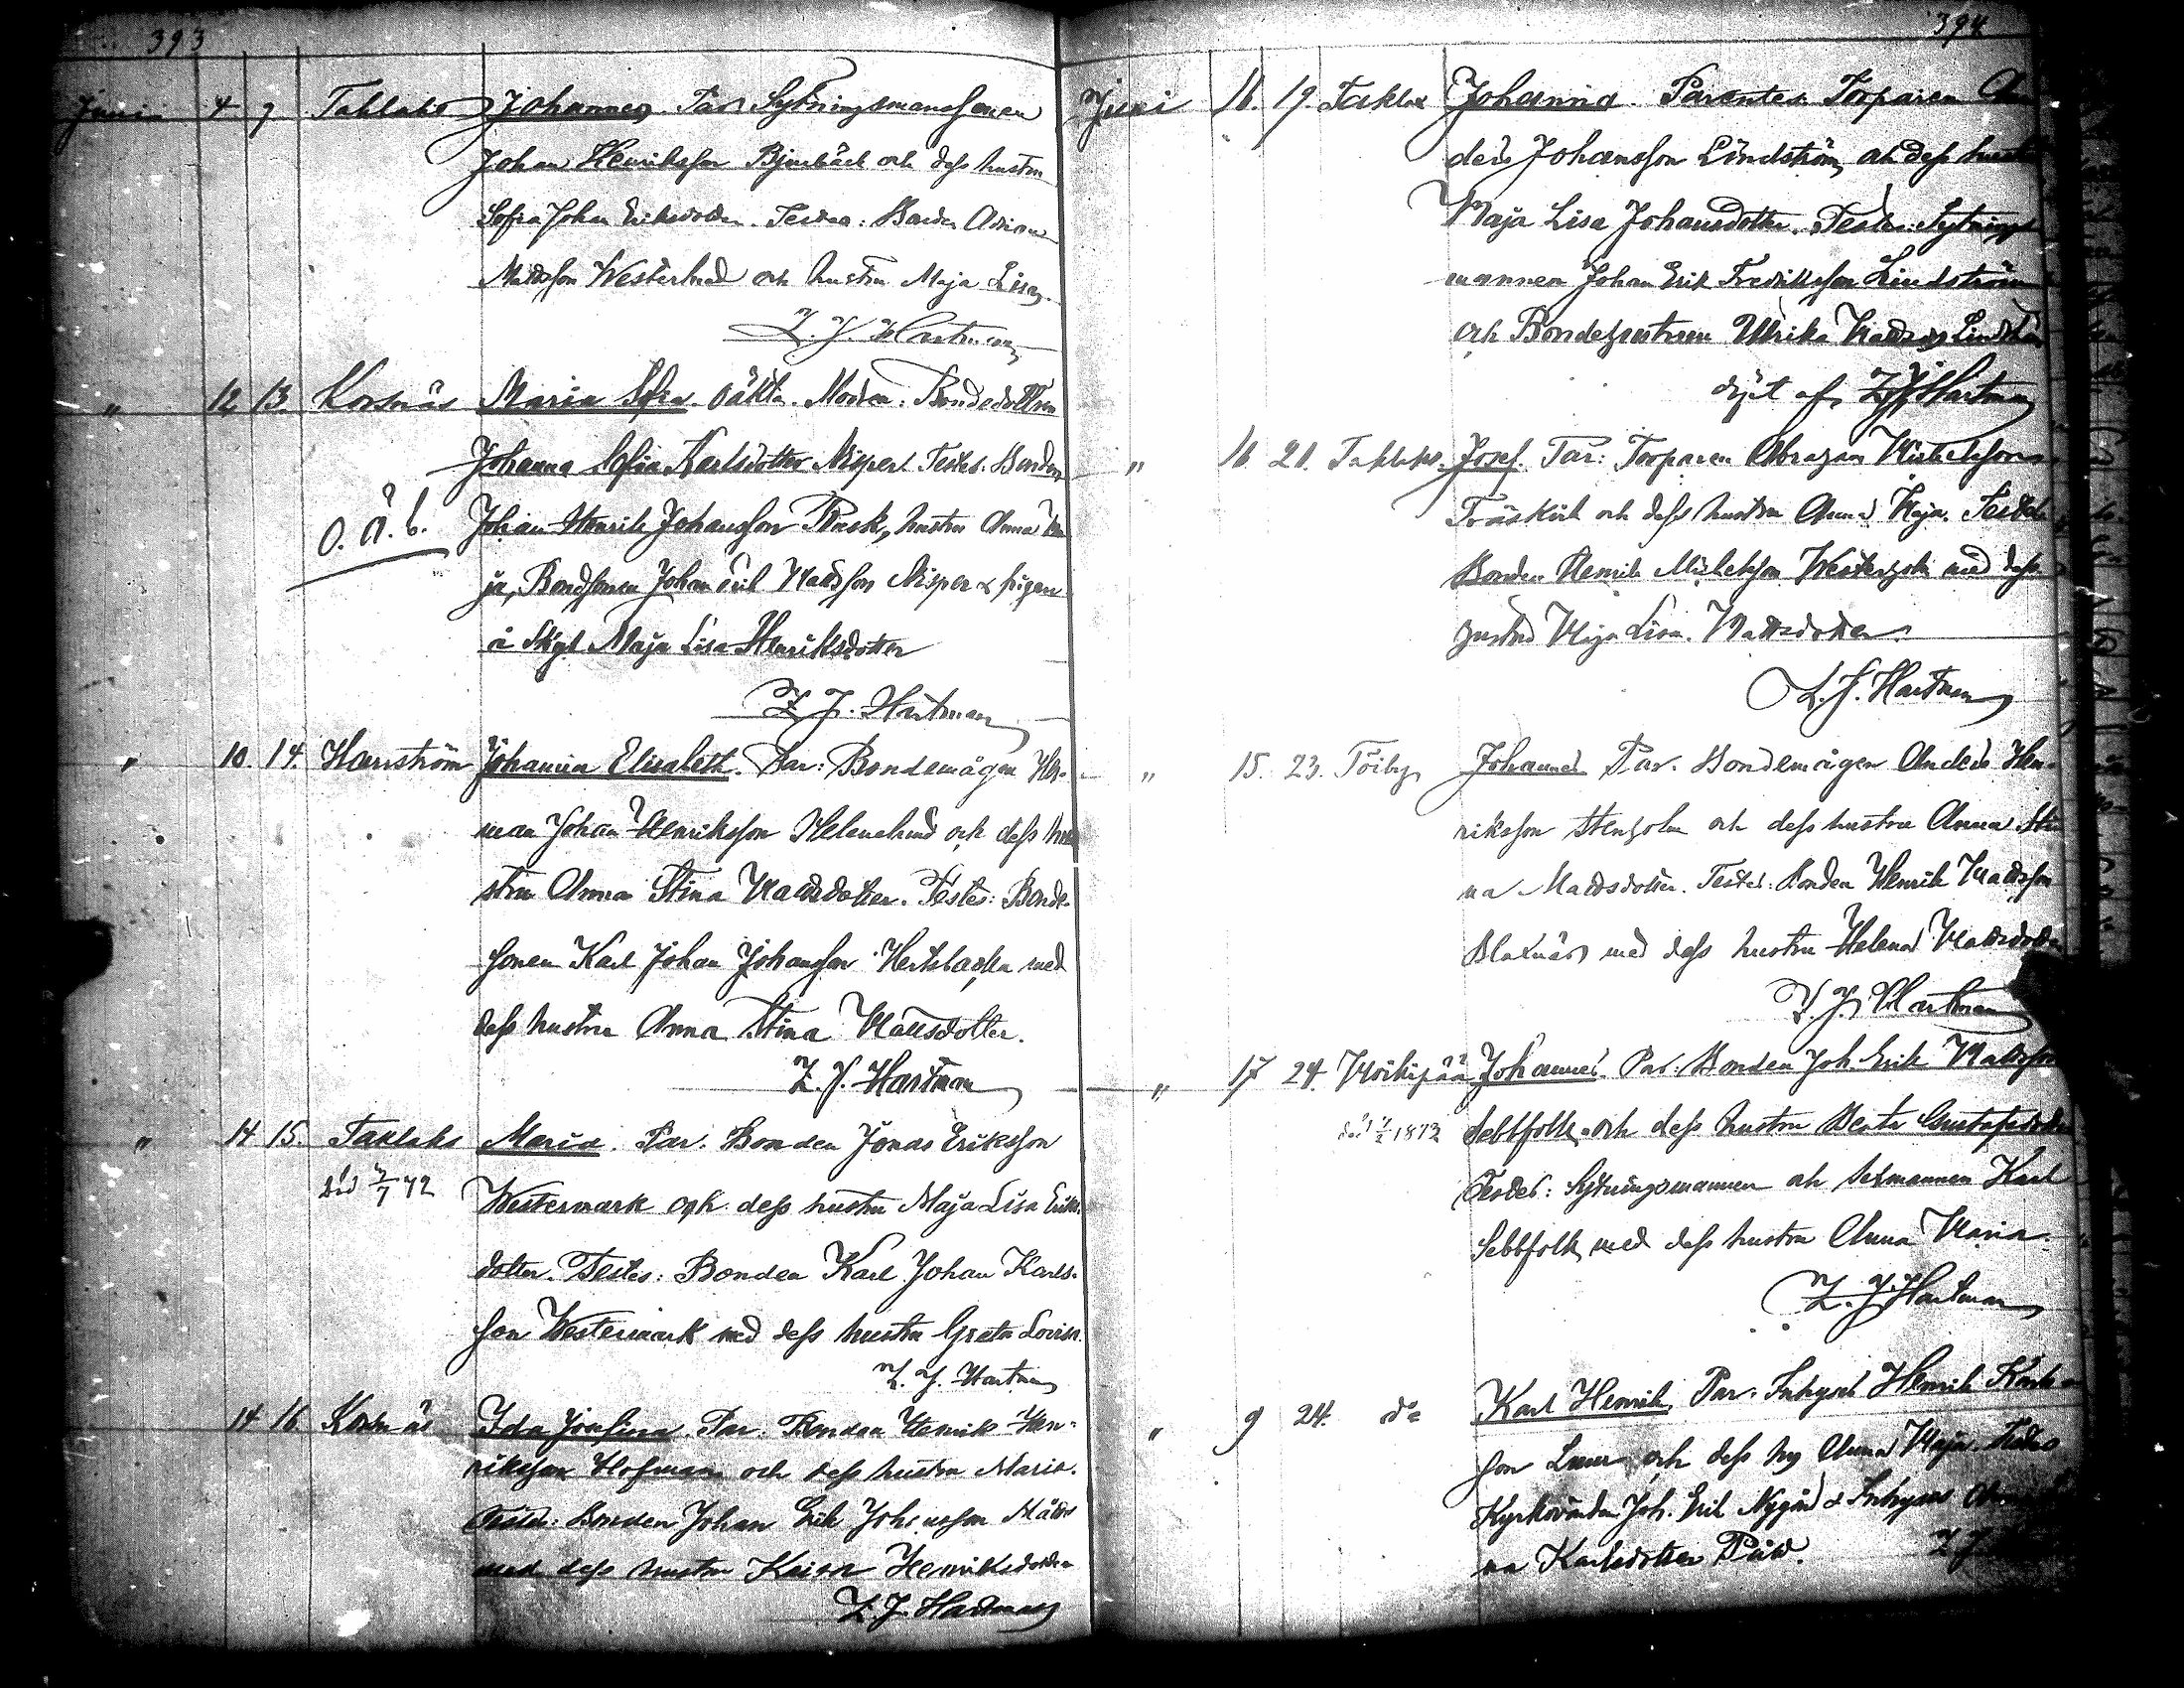 393
Juni 4 7 Taklaks Johannes. Par. Sytningsmanssonen
Johan Henriksson Bjurbäck och dess hustru
Sofia Johan Eriksdotter. Testes: Bonden
Mattsson Westerlund och hustru Maja Lisa.
Z. J. Hartman
" 12 13. Korsnäs Maria Sofia. oäkta. Modren: Bondedottren
Johanna Sofia Karlsdotter Nisper. Testes: Bonden
o. ä. b. Johan Henrik Johansson Rusk, hustru Anna Ma
ja, Bondsonen Johan Erik Mattsson Nisper & pigan
å Skgt Maja Lisa Henriksdotter
Z. J. Hartman
" 10. 14. Harrström Johanna Elisabeth. Par: Bondemågen Her-
man Johan Henriksson Helenelund och dess hu
stru Anna Stina Mattsdotter. Testes: Bonde-
sonen Karl Johan Johansson med
dess hustru Anna Stina Mattsdotter.
Z. J. Hartman
" 14 15. Taklaks Maria. Par. Bonden Jonas Eriksson
död 72 Westermark och dess hustru Maja Lisa Eriks-
dotter. Testes: Bonden Karl Johan Karls-
son Westermark med dess hustru Greta Lovisa.
Z. J. Hartman
14 16. Korsnäs Ida Josefina. Par. Bonden Henrik Hen-
riksson Hofman och dess hustru Maria.
Testes: Bonden Johan Erik Johansson
med dess hustru Kaisa Henriksdotter
Z. J. Hartman
394
Juni 16. 19. Taklax Johanna. Parentes Torparen An
ders Johansson Lindström och dess hustru
Maja Lisa Johansdotter. Testes: Sytnings
mannen Johan Erik Fredriksson Lindström
och Bondehustrun Ulrika Lindström
döpt af Z. J. Hartman
" 16. 21. Taklaks. Josef. Par: Torparen Abraham Michelsson
Träskvik och dess hustru Anna Maja. Testes
Bonden Henrik Michelsson Westerholm med dess
hustru Maja Lisa Mattsdotter.
Z. J. Hartman
" 15. 23. Töiby Johannes Par. Bondemågen Anders Hen-
riksson Stenholm och dess hustru Anna Sti
na Mattsdotter. Testes: Bonden Henrik Mattsson
Blaxnäs med dess hustru Helena Mattsdotter
Z. J. Hartman
" 17 24. Mörkipää Johannes. Par. Bonden Joh. Erik Mattsson
död 1872 Sebbfolk och dess hustru Beata Gustafsdotter
Testes: Sytningsmannen och sexmannen Karl
Sebbfolk med dess hustru Anna Maria.
Z. J. Hartman
" 9 24. do Karl Henrik, Par. Inhyses Henrik Karls-
son och dess h Anna Maja. Testes
Kyrkovärden Joh. Erik Nygård & Inhyses
na Karlsdotter
Z. J.